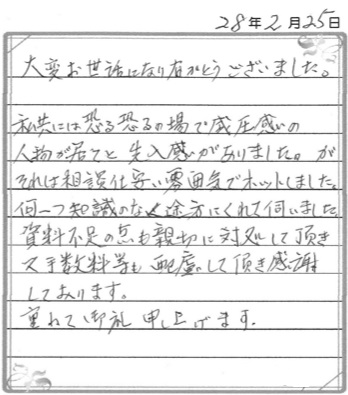 28年2月25日
大変お世話になり有がとうございました。
私共には恐る恐るの場で威圧感いの
人物が居てと先入感いがありました。が
それは相談仕安い雰囲気でホットしました。
何一つ知識のなく途方にくれて伺いました
資料不足の点も親切に対処して頂き
又手数料等も配慮して頂き感謝
しております。
重ねて御礼申し上げます.